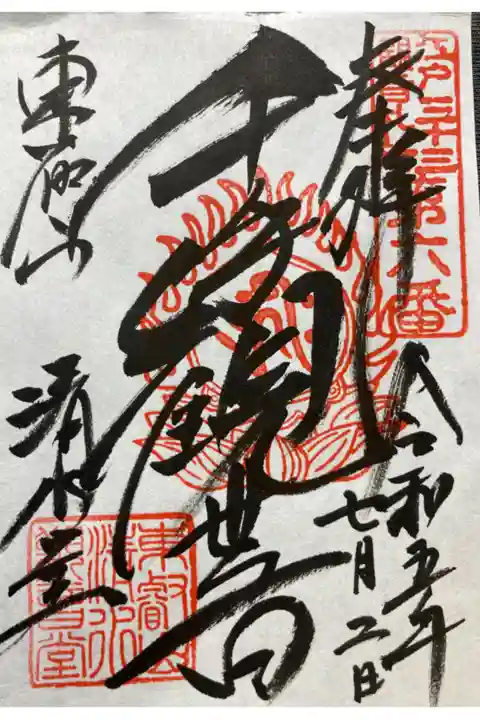 奉拝
令和五年
七月二日
千手観世音
東叡山
清水堂
第六番
東叡山
清水
観音堂